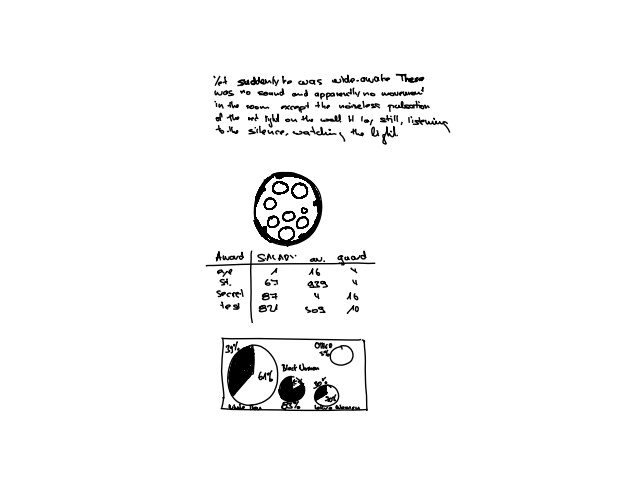 Yet suddenly he was wide-awake There
was no sound and apparently no movement
in the room except the noiseless pulsation
of the red light on the wall He lay still, listening
to the silence, watching the light.
Award SALARY av. guard
eye 1 16 4
St. 67 939 4
Secret 87 4 16
test 821 509 10
39% Office
5%
Black Woman
61% 30%
70%
83%